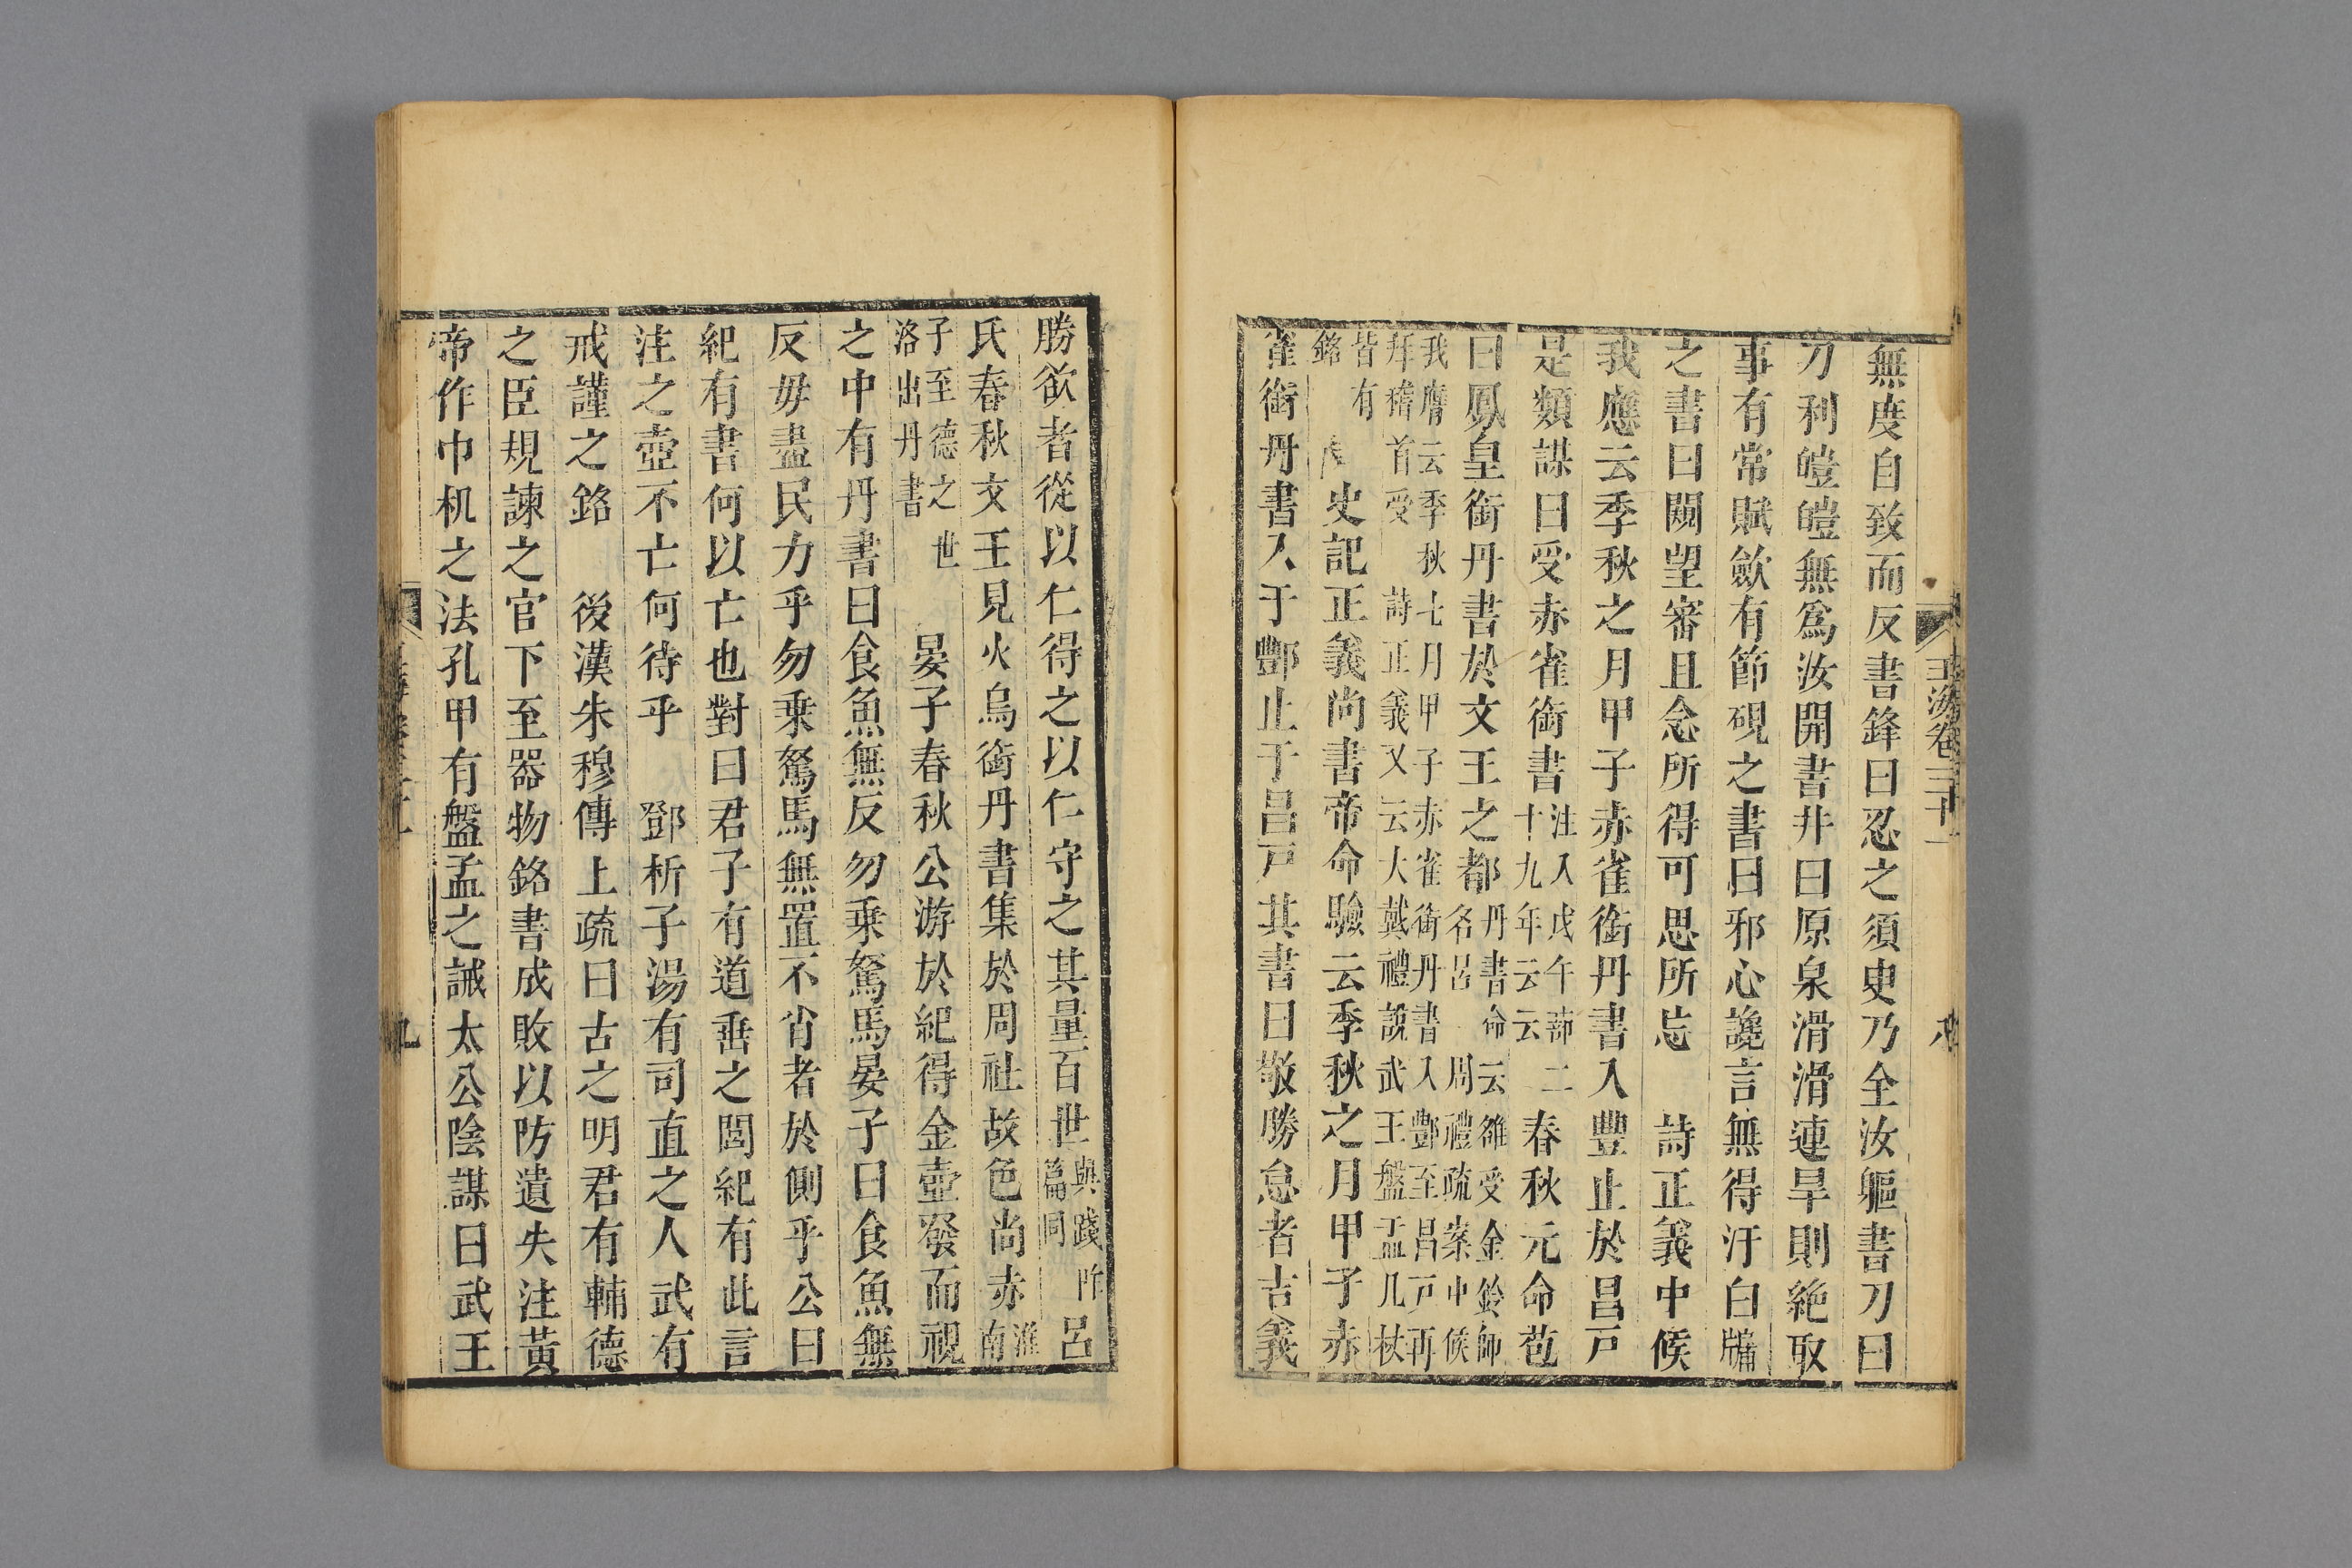 玉海卷三十一
八
無度自致而反書鋒曰忍之須臾乃全汝軀書刀曰
刀利皚皚無爲汝開書井曰原泉滑滑連旱則絶取
事有常賦斂有節硯之書曰邪心讒言無得汙白牖
之書曰闚望審且念所得可思所忘　詩正義中候
我應云季秋之月甲子赤雀銜丹書入豐止於昌戸
是類謀曰受赤雀銜書注入戊午蔀二十九年云云春秋元命苞
曰鳳皇銜丹書於文王之都丹書命云雒受金鈴師名呂　周禮疏案中候
我膺云季秋七月甲子赤雀銜丹書入酆至昌戸再
拜稽首受　詩正義又云大戴禮說武王盤盂几杖
皆有銘　史記正義尚書帝命驗云季秋之月甲子赤
雀銜丹書入于酆止于昌戸其書曰敬勝怠者吉義
勝欲者從以仁得之以仁守之其量百世與踐阼篇同呂
氏春秋文王見火烏銜丹書集於周社故色尚赤淮南
子至德之世洛出丹書　晏子春秋公游於紀得金壺發而視
之中有丹書曰食魚無反勿乗駑馬晏子曰食魚無
反毋盡民力乎勿乗駑馬無置不肖者於側乎公曰
紀有書何以亡也對曰君子有道垂之閭紀有此言
注之壺不亡何待乎　鄧析子湯有司直之人武有
戒謹之銘　後漢朱穆傳上疏曰古之明君有輔德
之臣規諫之官下至器物銘書成敗以防遺失注黃
帝作巾机之法孔甲有盤盂之誡太公陰謀曰武王
九